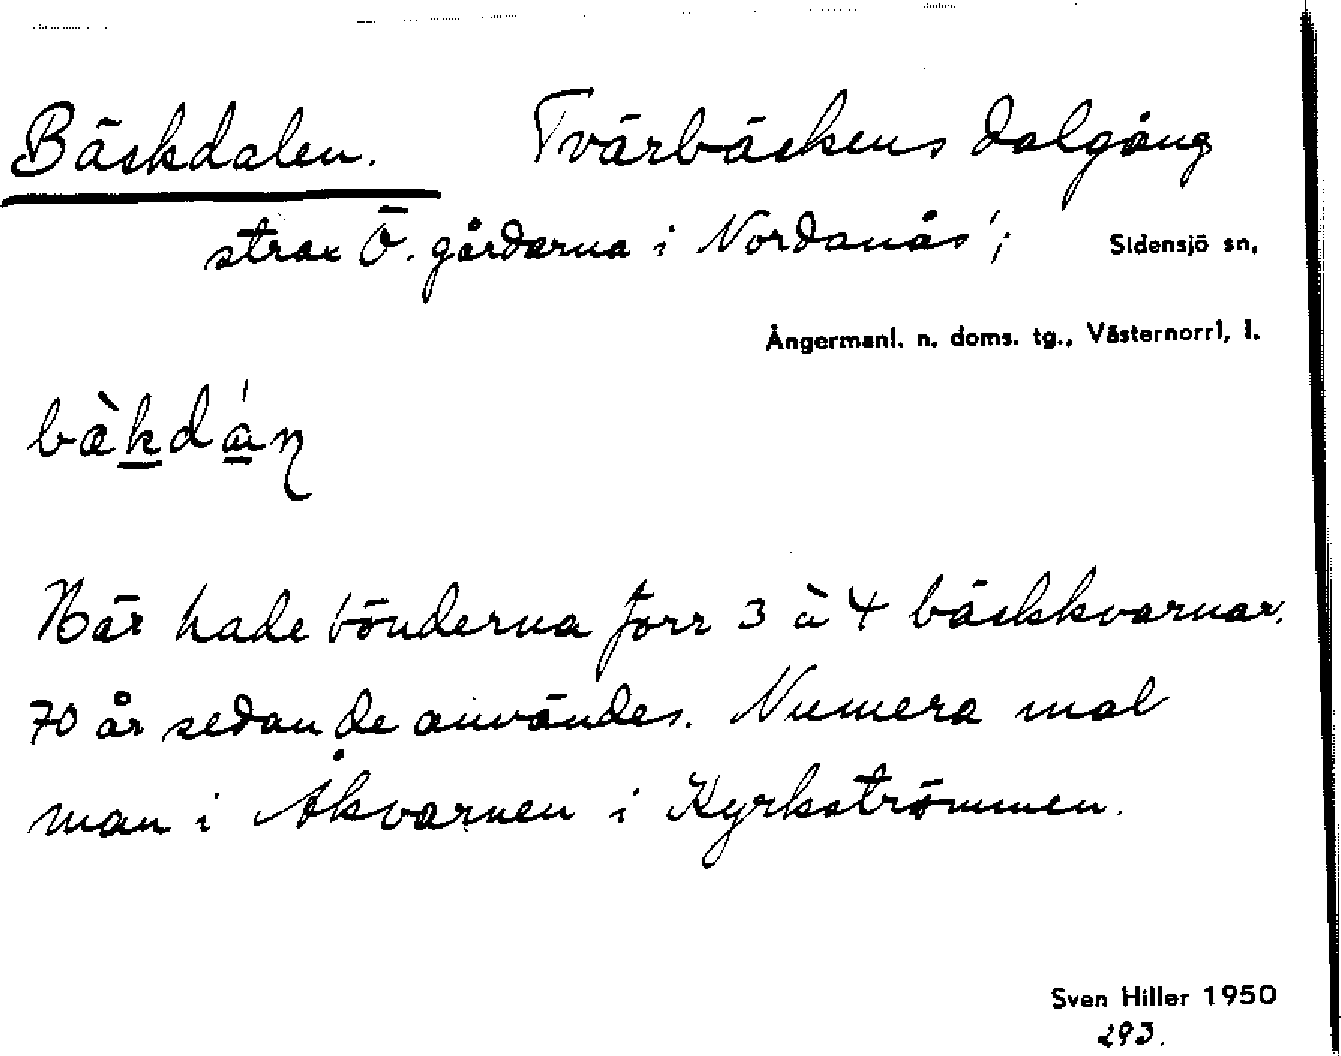 Bäckdalen. Tvärbäckens dalgång
strax Ö. gårdarna i Nordanås; Sidensjö sn,
Ångermanl. n. doms. tg., Västernorrl. l.
bæ̀kdán
Här hade bönderna förr 3 à 4 bäckkvarnar.
70 år sedan de användes. Numera mal
man i Åkvarnen i Kyrkströmmen.
Sven Hiller 1950
293.